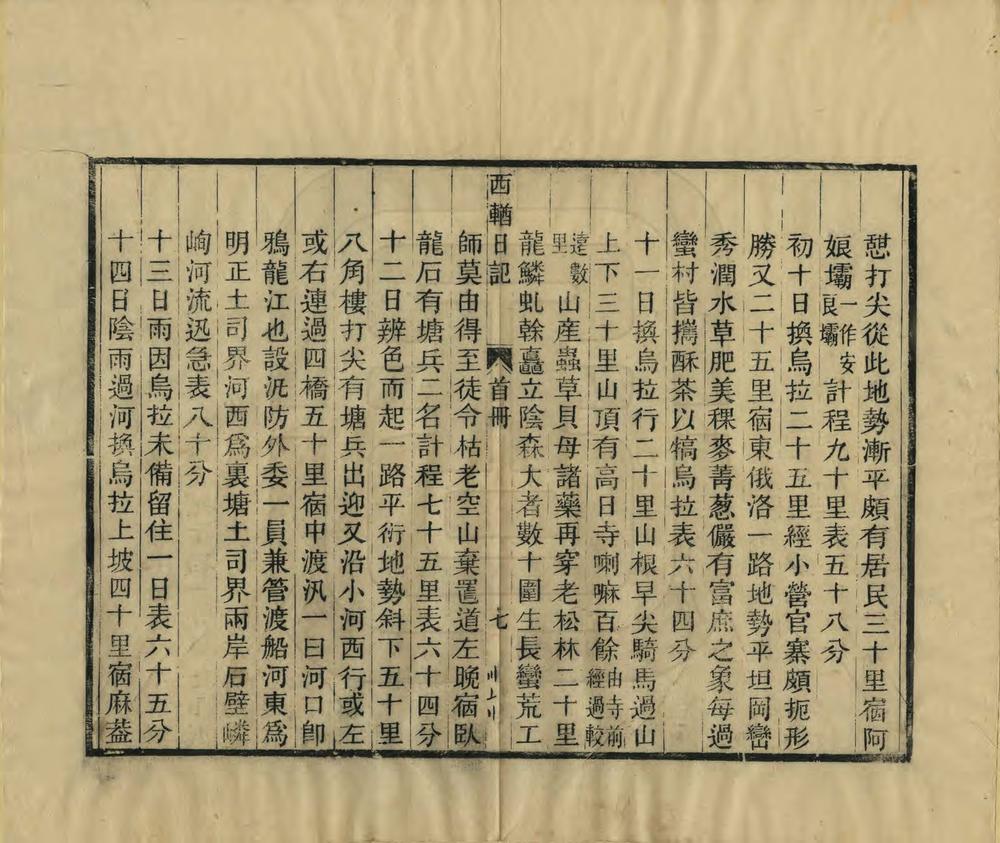 憇打尖從此地勢漸平頗有居民三十里宿阿
娘壩一作安良壩計程九十里表五十八分
初十日換烏拉二十五里經小營官寨頗扼形
勝又二十五里宿東俄洛一路地勢平坦岡巒
秀潤水草肥美稞麥菁葱儼有富庶之象每過
蠻村皆攜酥茶以犒烏拉表六十四分
十一日換烏拉行二十里山根早尖騎馬過山
上下三十里山頂有高日寺喇嘛百餘由寺前經過較
遠數里山産蟲草貝母諸藥再穿老松林二十里
龍鱗虬榦矗立陰森大者數十圍生長蠻荒工
西輶日記 首冊 七
師莫由得至徒令枯老空山棄置道左晚宿臥
龍石有塘兵二名計程七十五里表六十四分
十二日辨色而起一路平衍地勢斜下五十里
八角樓打尖有塘兵出迎又沿小河西行或左
或右連過四橋五十里宿中渡汛一曰河口卽
鴉龍江也設汛防外委一員兼管渡船河東爲
明正土司界河西爲裏塘土司界兩岸石壁嶙
峋河流迅急表八十分
十三日雨因烏拉未備留住一日表六十五分
十四日陰雨過河換烏拉上坡四十里宿麻葢